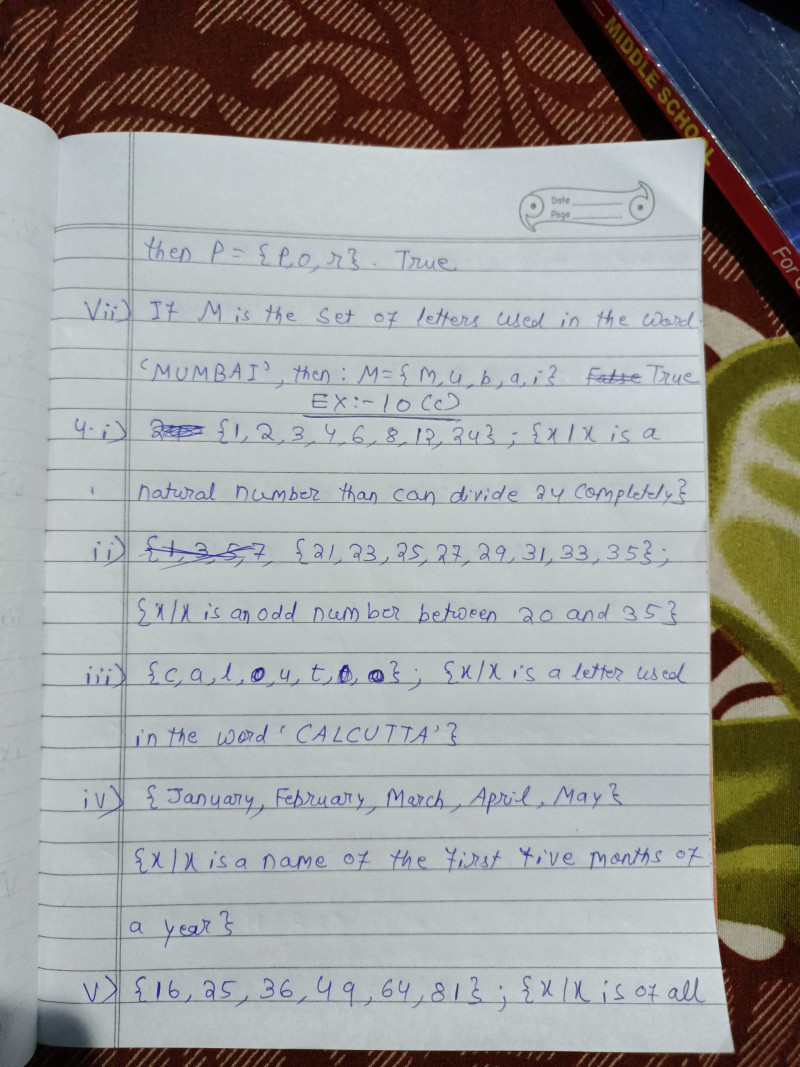 — MIDDLE SCHOOL
For
Date
Page
then P = {P, o, r}. True
vii) If M is the set of letters used in the word
'MUMBAI', then : M={m, u, b, a, i}. False True
EX:- 10 (C)
4. i) {1, 2, 3, 4, 6, 8, 12, 24} ; {x/x is a
natural number than can divide 24 completely}
ii) {1, 3, 5, 7, {21, 23, 25, 27, 29, 31, 33, 35} ;
{x/x is an odd number between 20 and 35}
iii) {c, a, l, u, t} ; {x/x is a letter used
in the word 'CALCUTTA'}
iv) {January, February, March, April, May}
{x/x is a name of the first five months of
a year}
v) {16, 25, 36, 49, 64, 81} ; {x/x is of all